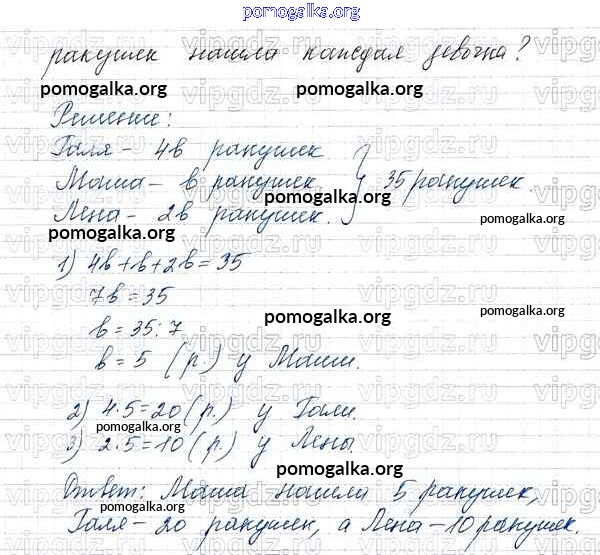 pomogalka.org
ракушек нашла каждая девочка?
pomogalka.org pomogalka.org
Решение:
Галя - 4в ракушек
Маша - в ракушек } 35 ракушек.
Лена - 2в ракушек.
pomogalka.org pomogalka.org pomogalka.org
1) 4в+в+2в=35
7в=35
pomogalka.org pomogalka.org
в=35:7
в=5 (р.) у Маши.
2) 4·5=20 (р.) у Гали.
pomogalka.org pomogalka.org
3) 2·5=10 (р.) у Лены.
pomogalka.org
Ответ: Маша нашла 5 ракушек,
Галя - 20 ракушек, а Лена - 10 ракушек.
vipgdz.ru